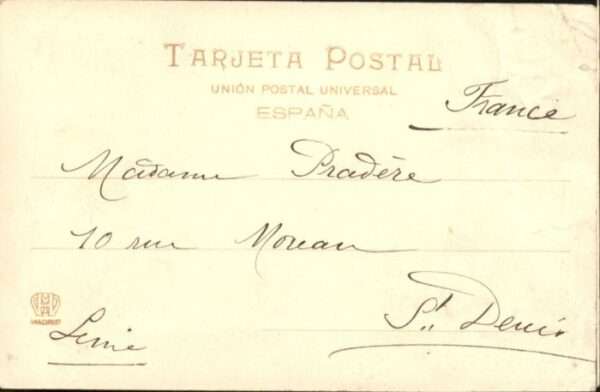 TARJETA POSTAL
UNIÓN POSTAL UNIVERSAL
ESPAÑA
France
Madame Pradère
10 rue Moreau
St. Denis
MADRID
Seine